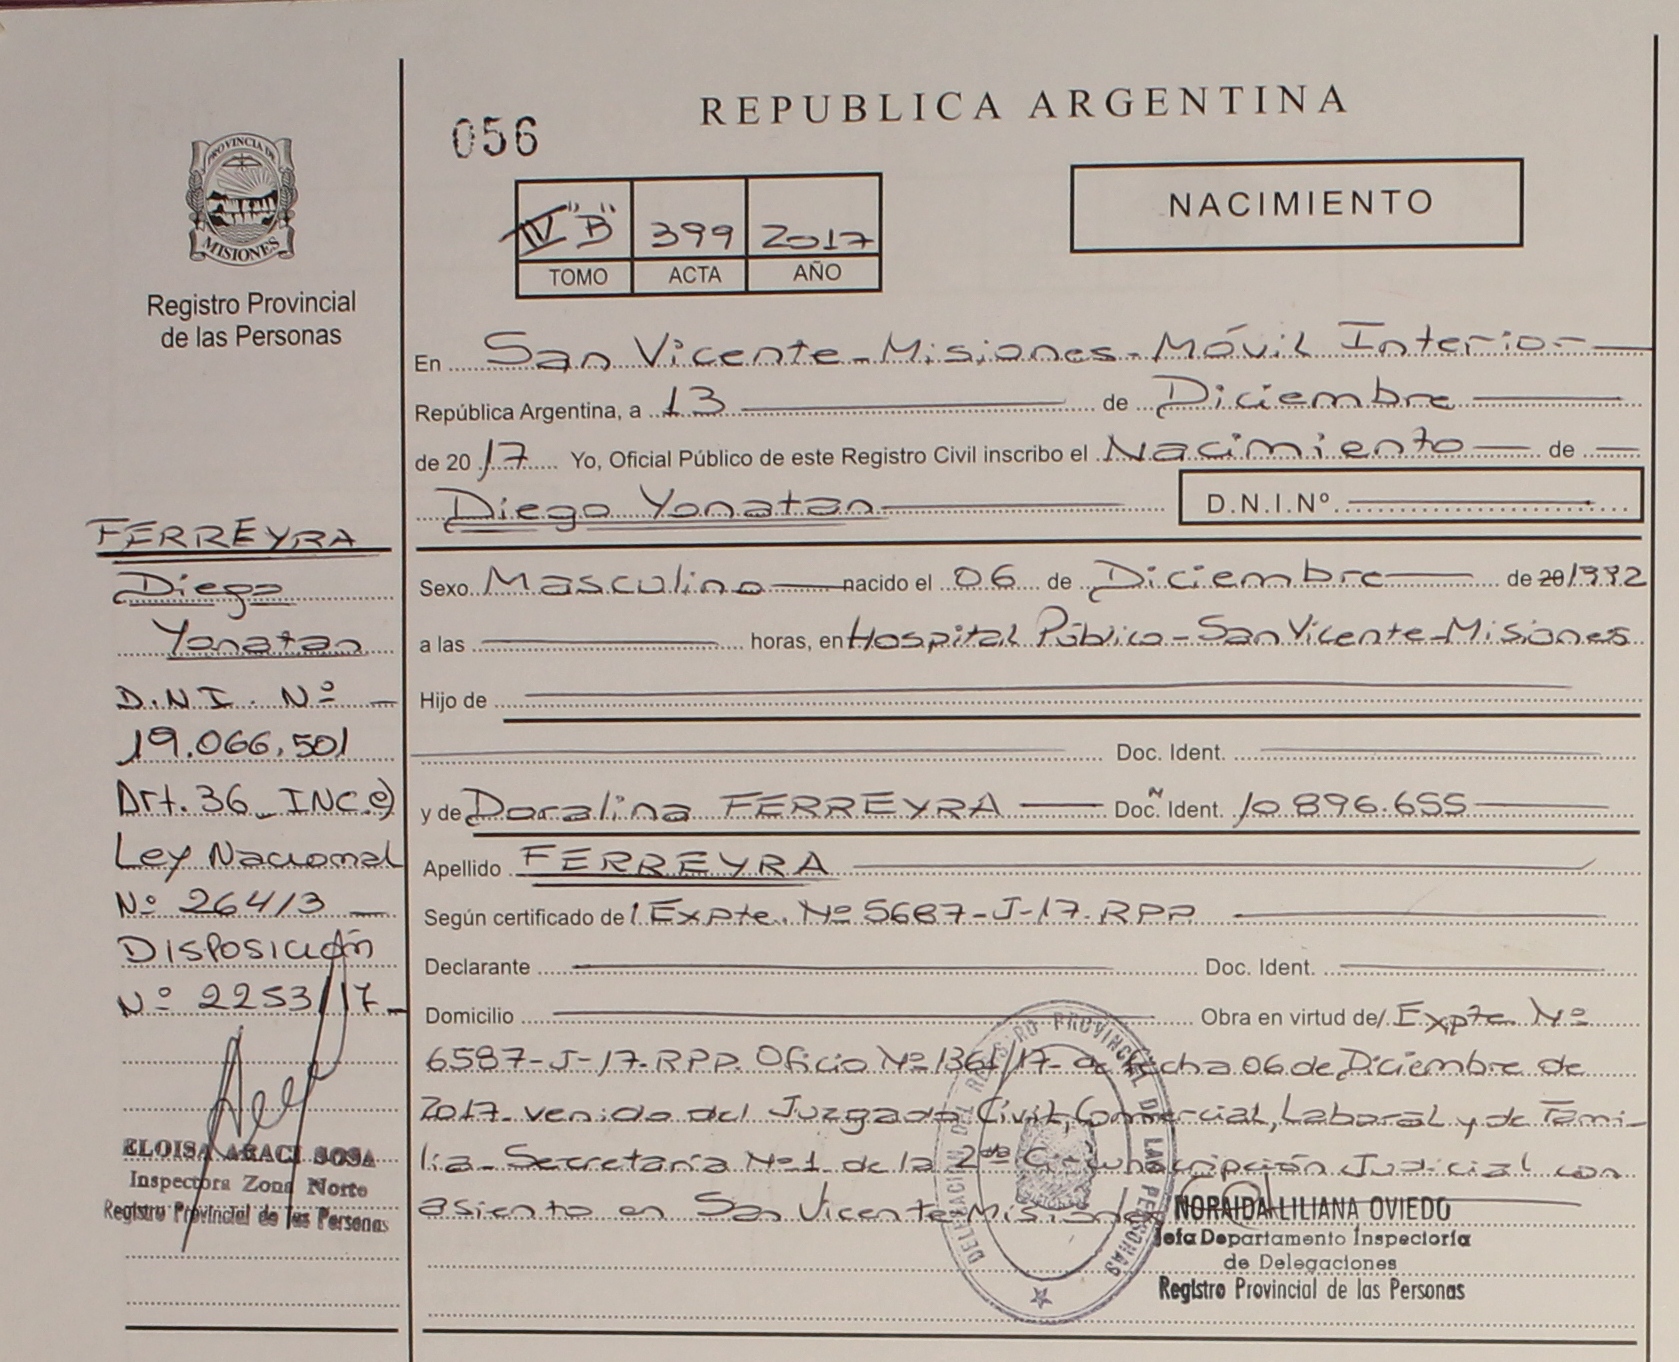 REPUBLICA ARGENTINA
056
NACIMIENTO
IV "B" 399 2017
TOMO ACTA AÑO
PROVINCIA DE
MISIONES
Registro Provincial
de las Personas
En San Vicente - Misiones - Móvil Interior
República Argentina, a 13 de Diciembre
de 2017 Yo, Oficial Público de este Registro Civil inscribo el Nacimiento de
Diego Yonatan D.N.I.Nº
Sexo Masculino nacido el 06 de Diciembre de 20/1992
a las horas, en Hospital Público - San Vicente - Misiones
Hijo de
Doc. Ident.
y de Doralina FERREYRA Doc. N Ident. 10.896.655
Apellido FERREYRA
Según certificado de/. Expte. Nº 5687-J-17-RPP
Declarante Doc. Ident.
Domicilio Obra en virtud de/. Expte Nº
6587-J-17-RPP. Oficio Nº 1361/17- de fecha 06 de Diciembre de
2017- venido del Juzgado Civil, Comercial, Laboral y de Fami-
lia - Secretaría Nº 1 de la 2da Circunscripción Judicial con
asiento en San Vicente Misiones
FERREYRA
Diego
Yonatan
D.N.I. Nº
19.066.501
Art. 36 - INC. e)
Ley Nacional
Nº 26413
DISPOSICIÓN
Nº 2253/17
ELOISA ARACI SOSA
Inspectora Zona Norte
Registro Provincial de las Personas
REGISTRO PROVINCIAL DE LAS PERSONAS
NORAIDA LILIANA OVIEDO
Jefa Departamento Inspectoría
de Delegaciones
Registro Provincial de las Personas